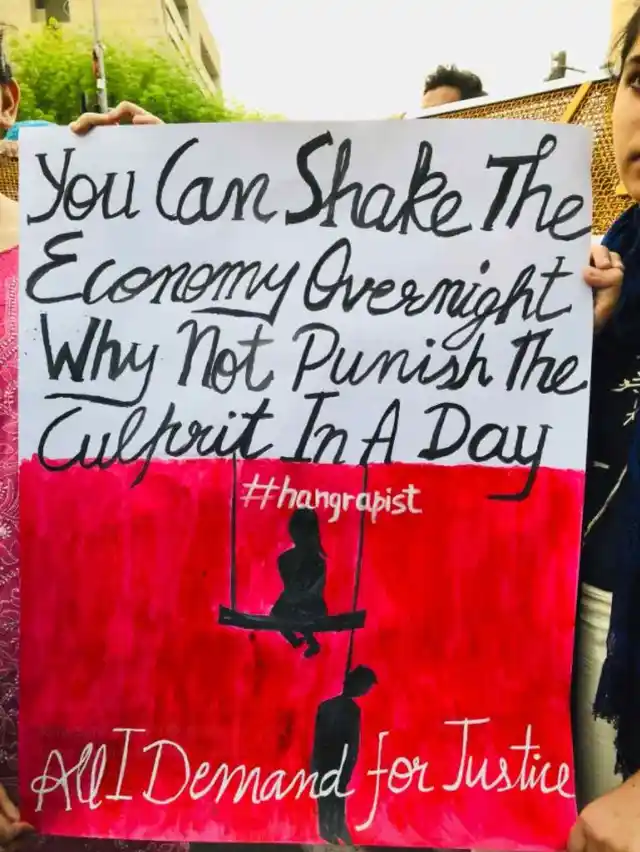 You Can Shake The
Economy Overnight
Why Not Punish The
Culprit In A Day
#hangrapist
All I Demand for Justice